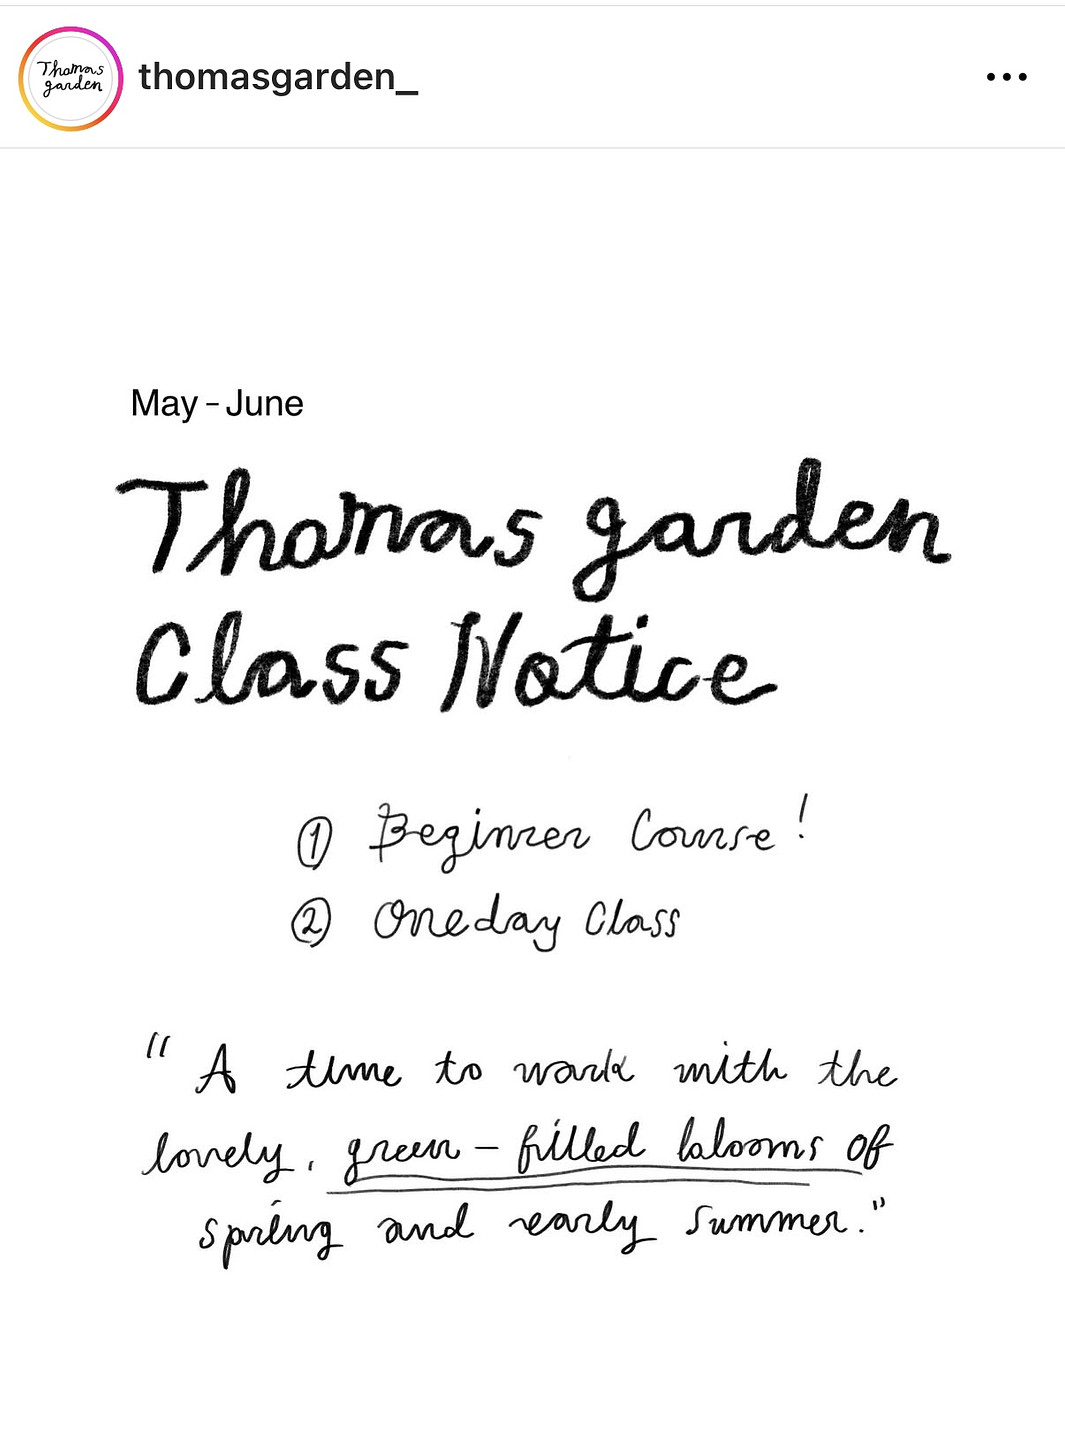 Thomas
garden
thomasgarden_
May - June
Thomas garden
Class Notice
① Beginner Course!
② Oneday Class
"A time to work with the
lovely, green - filled blooms of
spring and early summer."